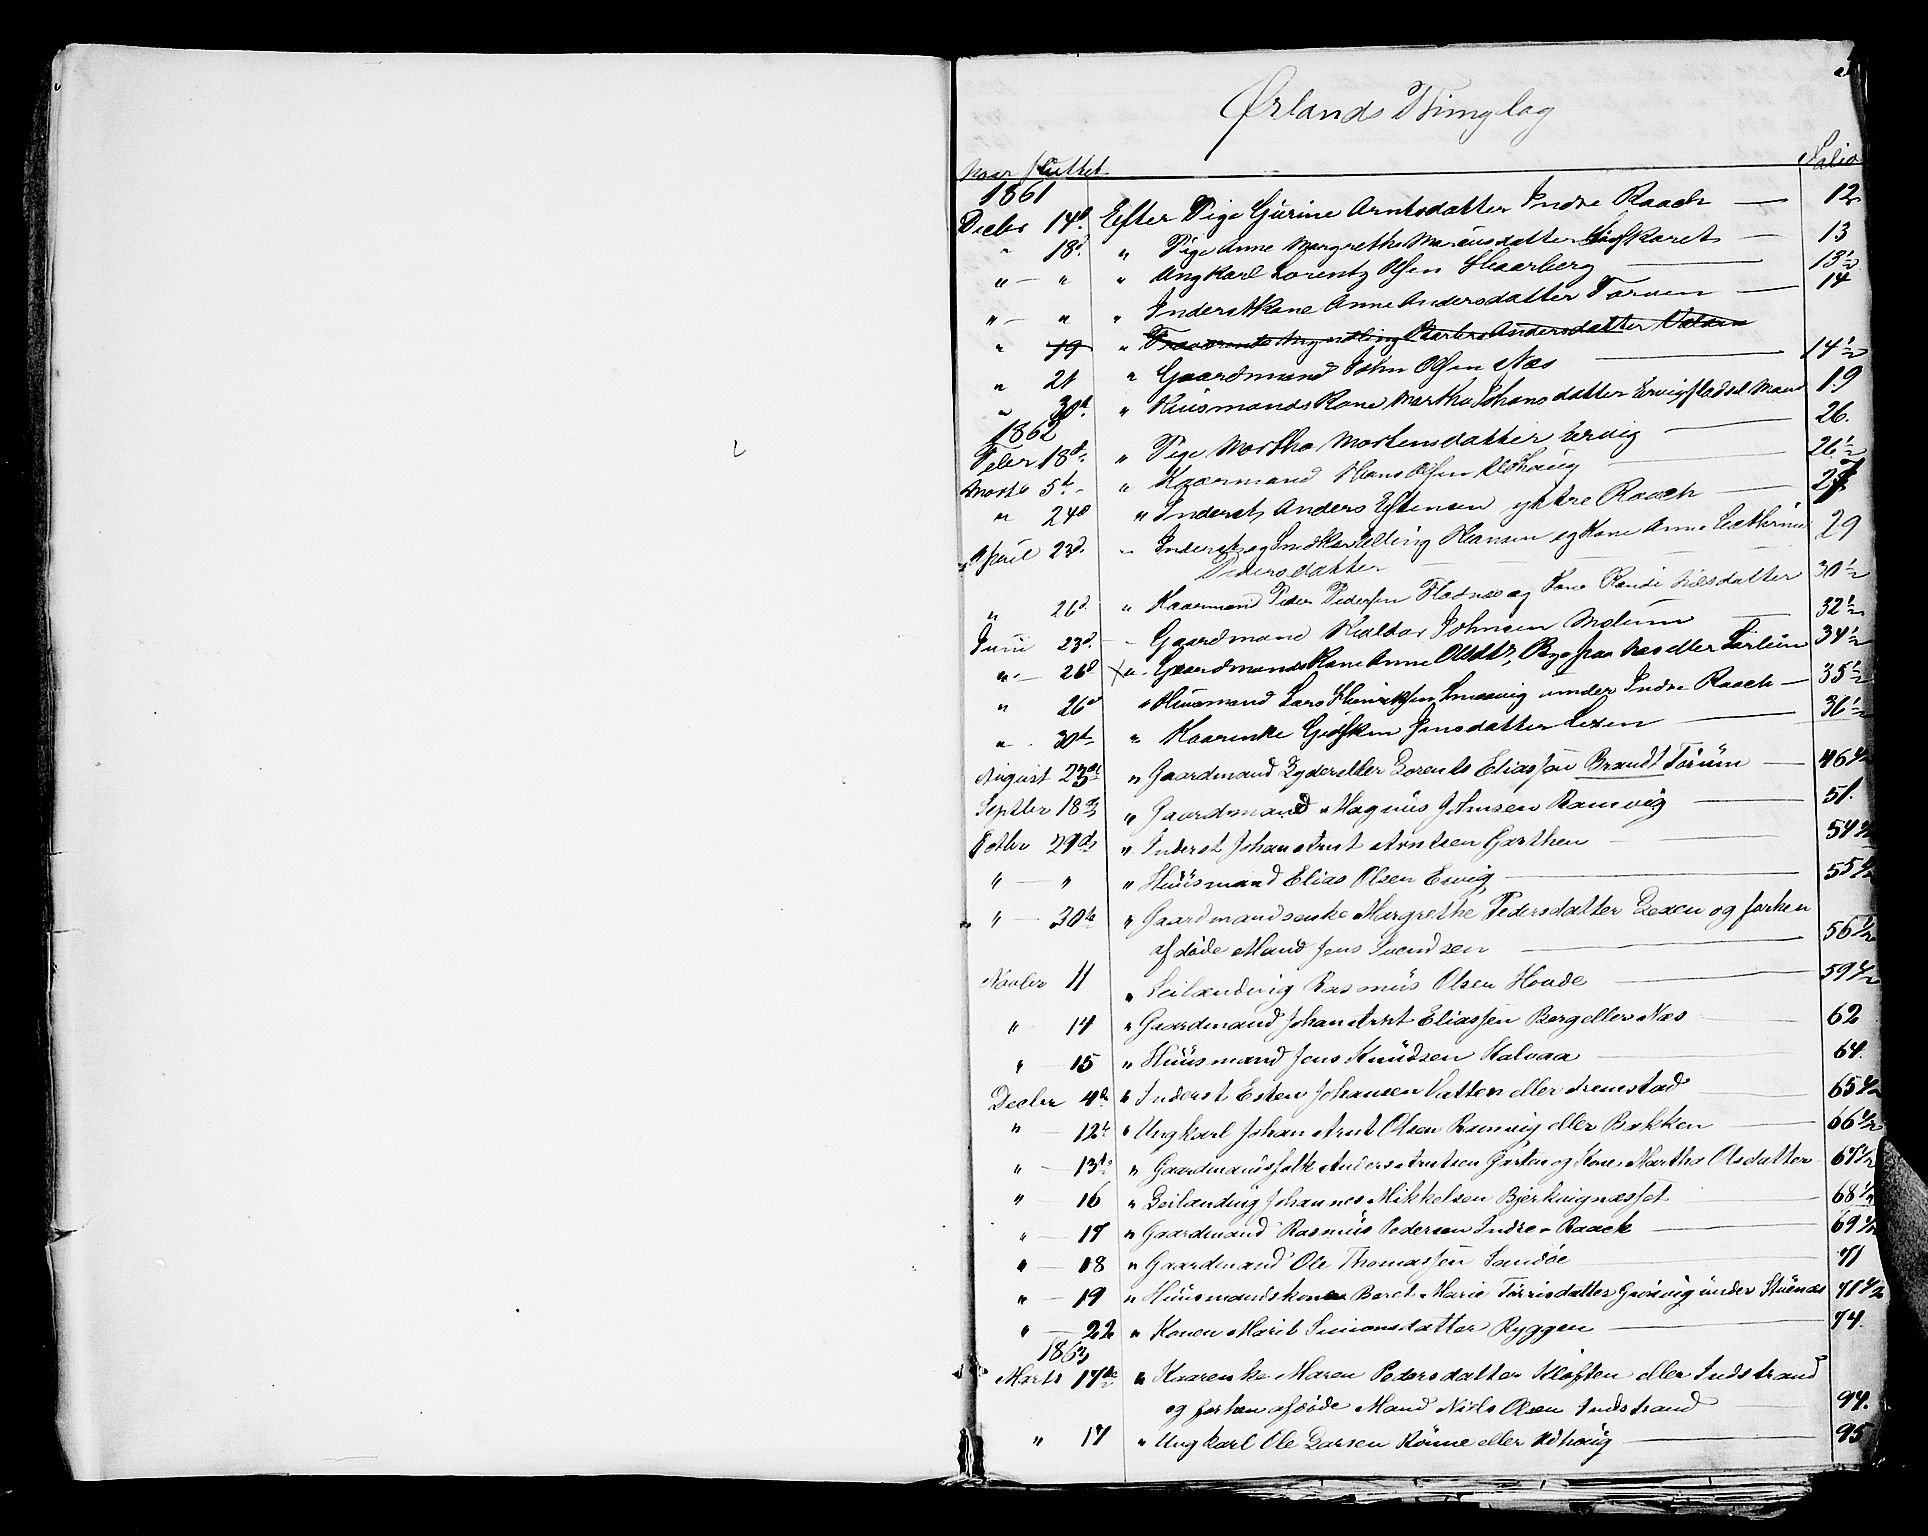 Ørlands Thinglag
Naar sluttet Folio
1861
Decbr 14d Efter Pige Gurine Arntsdatter Indre Raach — 12
" 18d " Pige Anne Margrethe Mariusdatter — 13
" — " " Ungkarl Lorentz Olsen Skaarberg — 13½
" — " " Inderstkone Anne Andersdatter Tarven — 14
" 19 " Andersdatter
" 21 " Gaardmand John Olsen Næs — 14½
" 30d " Huusmandskone Martha Johansdatter Ervigfladsel 19
1862
Feber 18d " Pige Martha Mortensdatter Ervig — 26.
Marts 5t " Kaarmand Hans Olsen Udhaug — 26½
" 24d " Inderst Anders Estensen ytre Raach — 27
April 23d " Inderst og Elling Hansen og Kone Anne Cathrina 29
Pedersdatter —
" 26d " Kaarmand Peder Pedersen Fladnes og Kone Randi Nilsdatter 30½
Juni 23d — Gaardmand Haldor Johnsen Melum — 32½
" — 26d × " Gaardmandskone Anne Olsdtr, Bye fra Næs eller 34½
" 26d " Huusmand Lars Henriksen Smaavig under Indre Raach — 35½
" 30d " Kaarenke Gjøsken Jensdatter Lexen — 36½
August 23de " Gaardmand Lyder eller Lorents Eliassen Brandt Tørum — 46½
Septbr 18de " Gaardmand Magnus Johnsen Ramvig — 51.
Octbr 29de " Inderst Johan Arnt Arntsen Garthen — 54½
" — " " Huusmand Elias Olsen Ervig — 55½
" — 30te " Gaardmandsenke Margrethe Pedersdatter Lexen og forhen
afdøde Mand Jens Svendsen — 56½
Novbr 11 " Leilænding Rasmus Olsen Hovde — 59½
" 14 " Gaardmand Johan Arnt Eliassen Berg eller Næs — 62
" 15 " Huusmand Jens Knudsen Kalvaa — 64.
Decbr 4de " Inderst Esten Johansen Vatten eller — 65½
" — 12te " Ungkarl Johan Arnt Olsen Ramvig eller Bakken — 66½
" — 13de " Gaardmandsfolk Anders Arntsen Garten og Kone Martha Olsdatter — 67½
" — 16 " Leilænding Johannes Mikkelsen Bjerkvignæsset — 68½
" — 17 " Gaardmand Rasmus Pedersen Indre Raach — 69½
" — 18 " Gaardmand Ole Thomassen Sandøe — 71
" — 19 " Huusmandskone Beret Marie Tørrisdatter under 71½
" — 22 " Konen Marit Simonsdatter Ryggen — 74.
1863
Marts 17de " Kaarenke Maren Pedersdatter Kløften eller Indstrand
og forhen afdøde Mand Niels Olsen Indstrand — 94.
" 17 " Ungkarl Ole Larsen Rønne eller Udhaug — 95